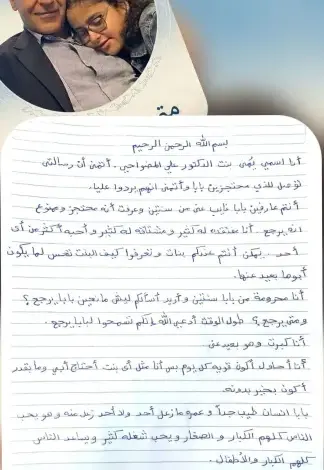 بسم الله الرحمن الرحيم
أنا اسمي يُمنى بنت الدكتور علي المضواحي. أتمنى أن رسالتي
توصل للذي محتجزين بابا وأتمنى انهم يردوا عليا.
أنتم عارفين بابا غايب عني من سنتين وعرفت أنه محتجز وممنوع
انه يرجع. أنا مفتقده له كثير ومشتاقة له كثير وأحبه أكثر من أي
أحد. يمكن أنتم عندكم بنات وتعرفوا كيف البنت تحس لما يكون
أبوها بعيد عنها.
أنا محرومة من بابا سنتين وأريد أسألكم ليش مانعين بابا يرجع؟
ومتى يرجع؟ طول الوقت أدعي الله إنكم تسمحوا لبابا يرجع.
أنا كبرت وهو بعيد عني
أنا أحاول أكون قويه كل يوم بس أنا مثل أي بنت أحتاج أبي وما بقدر
أكون بخير بدونه.
بابا انسان طيب جداً وعمره ما زعل أحد ولا أحد زعل منه وهو يحب
الناس كلهم الكبار والصغار ويحب شغله كثير ويساعد الناس
كلهم الكبار والأطفال.